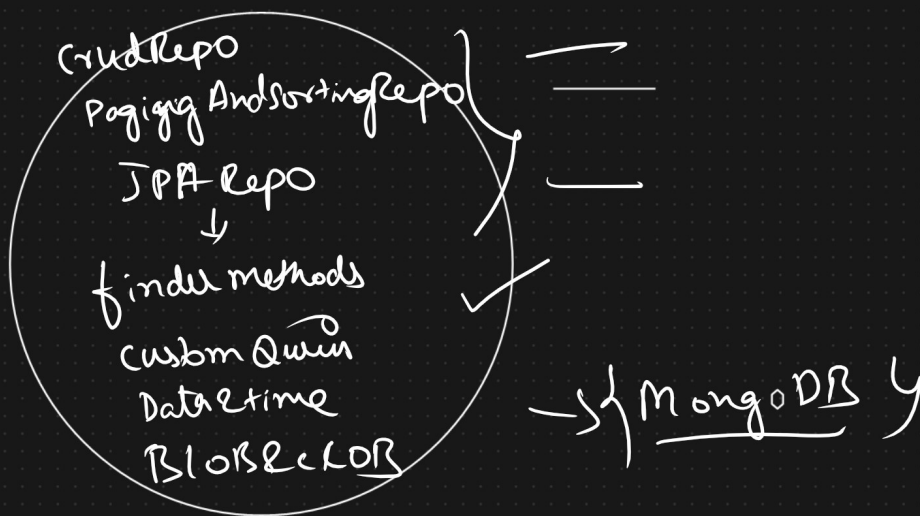 CrudRepo
PagigigAndSortingRepo
JPA-Repo
finder methods
custom Queries
Data&time
BLOB&CLOB
MongoDB